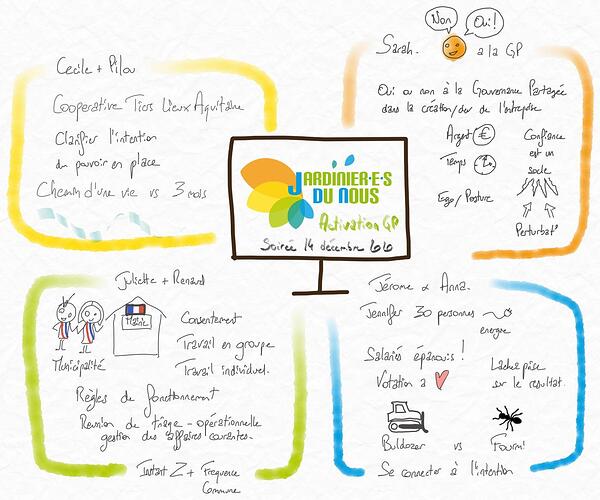 Cecile + Pilou
Cooperative Tiers Lieux Aquitaine
Clarifier l'intention
du pouvoir en place
Chemin d'une vie vs 3 mois
Non
Oui!
Sarah.
a la GP
Oui ou non à la Gouvernance Partagée
dans la création/dev de l'entreprise
Argent €
Temps
Ego/Posture
Confiance
est un
socle
Perturbat°
JARDINIER·E·S
DU NOUS
Activation GP
Soirée 14 décembre
Juliette + Renand
Mairie
Municipalité
Consentement
Travail en groupe
Travail individuel.
Règles de fonctionnement
Reunion de triage - opérationnelle
gestion des affaires courantes.
Instant Z + Frequence
Commune
Jérome & Anna.
Jennifer 30 personnes
energie
Salariés épanouis!
Votation a
Lacher prise
sur le resultat.
Buldozer vs Fourmi
Se connecter à l'intention